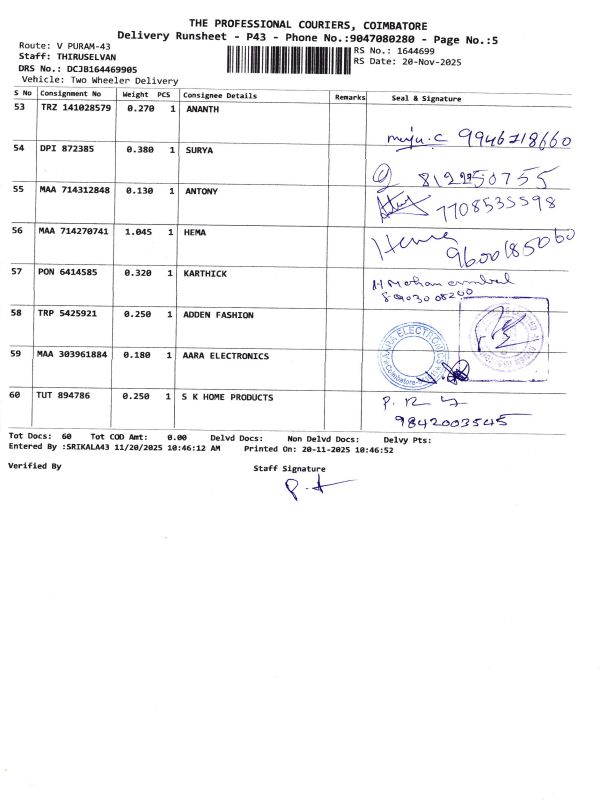 THE PROFESSIONAL COURIERS, COIMBATORE
Delivery Runsheet - P43 - Phone No.:9047080280 - Page No.:5
Route: V PURAM-43
RS No.: 1644699
Staff: THIRUSELVAN
RS Date: 20-Nov-2025
DRS No.: DCJB164469905
Vehicle: Two Wheeler Delivery
S No Consignment No Weight PCS Consignee Details Remarks Seal & Signature
53 TRZ 141028579 0.270 1 ANANTH
9946718660
54 DPI 872385 0.380 1 SURYA
55 MAA 714312848 0.130 1 ANTONY
7708535598
56 MAA 714270741 1.045 1 HEMA
Hema 9600185060
57 PON 6414585 0.320 1 KARTHICK
58 TRP 5425921 0.250 1 ADDEN FASHION
59 MAA 303961884 0.180 1 AARA ELECTRONICS
AARA ELECTRONICS
Coimbatore
60 TUT 894786 0.250 1 S K HOME PRODUCTS
9842003545
Tot Docs: 60 Tot COD Amt: 0.00 Delvd Docs: Non Delvd Docs: Delvy Pts:
Entered By :SRIKALA43 11/20/2025 10:46:12 AM Printed On: 20-11-2025 10:46:52
Verified By
Staff Signature